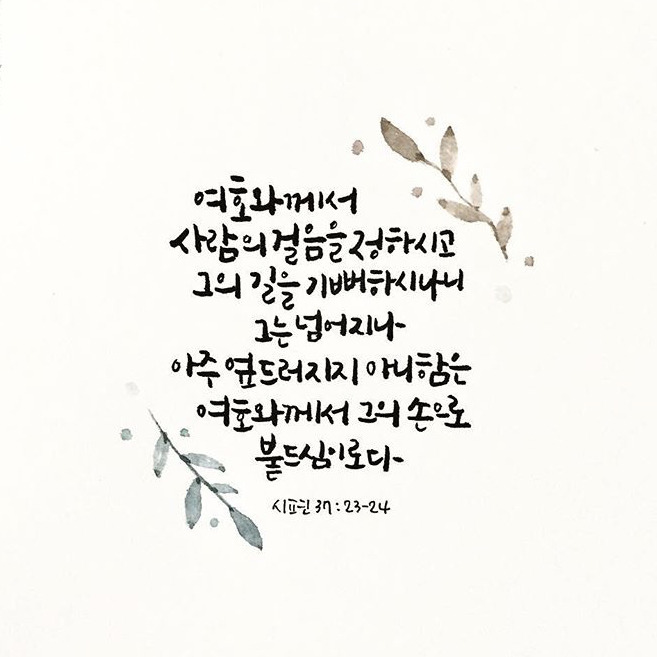 여호와께서
사람의 걸음을 정하시고
그의 길을 기뻐하시나니
그는 넘어지나
아주 엎드러지지 아니함은
여호와께서 그의 손으로
붙드심이로다
시편 37:23-24